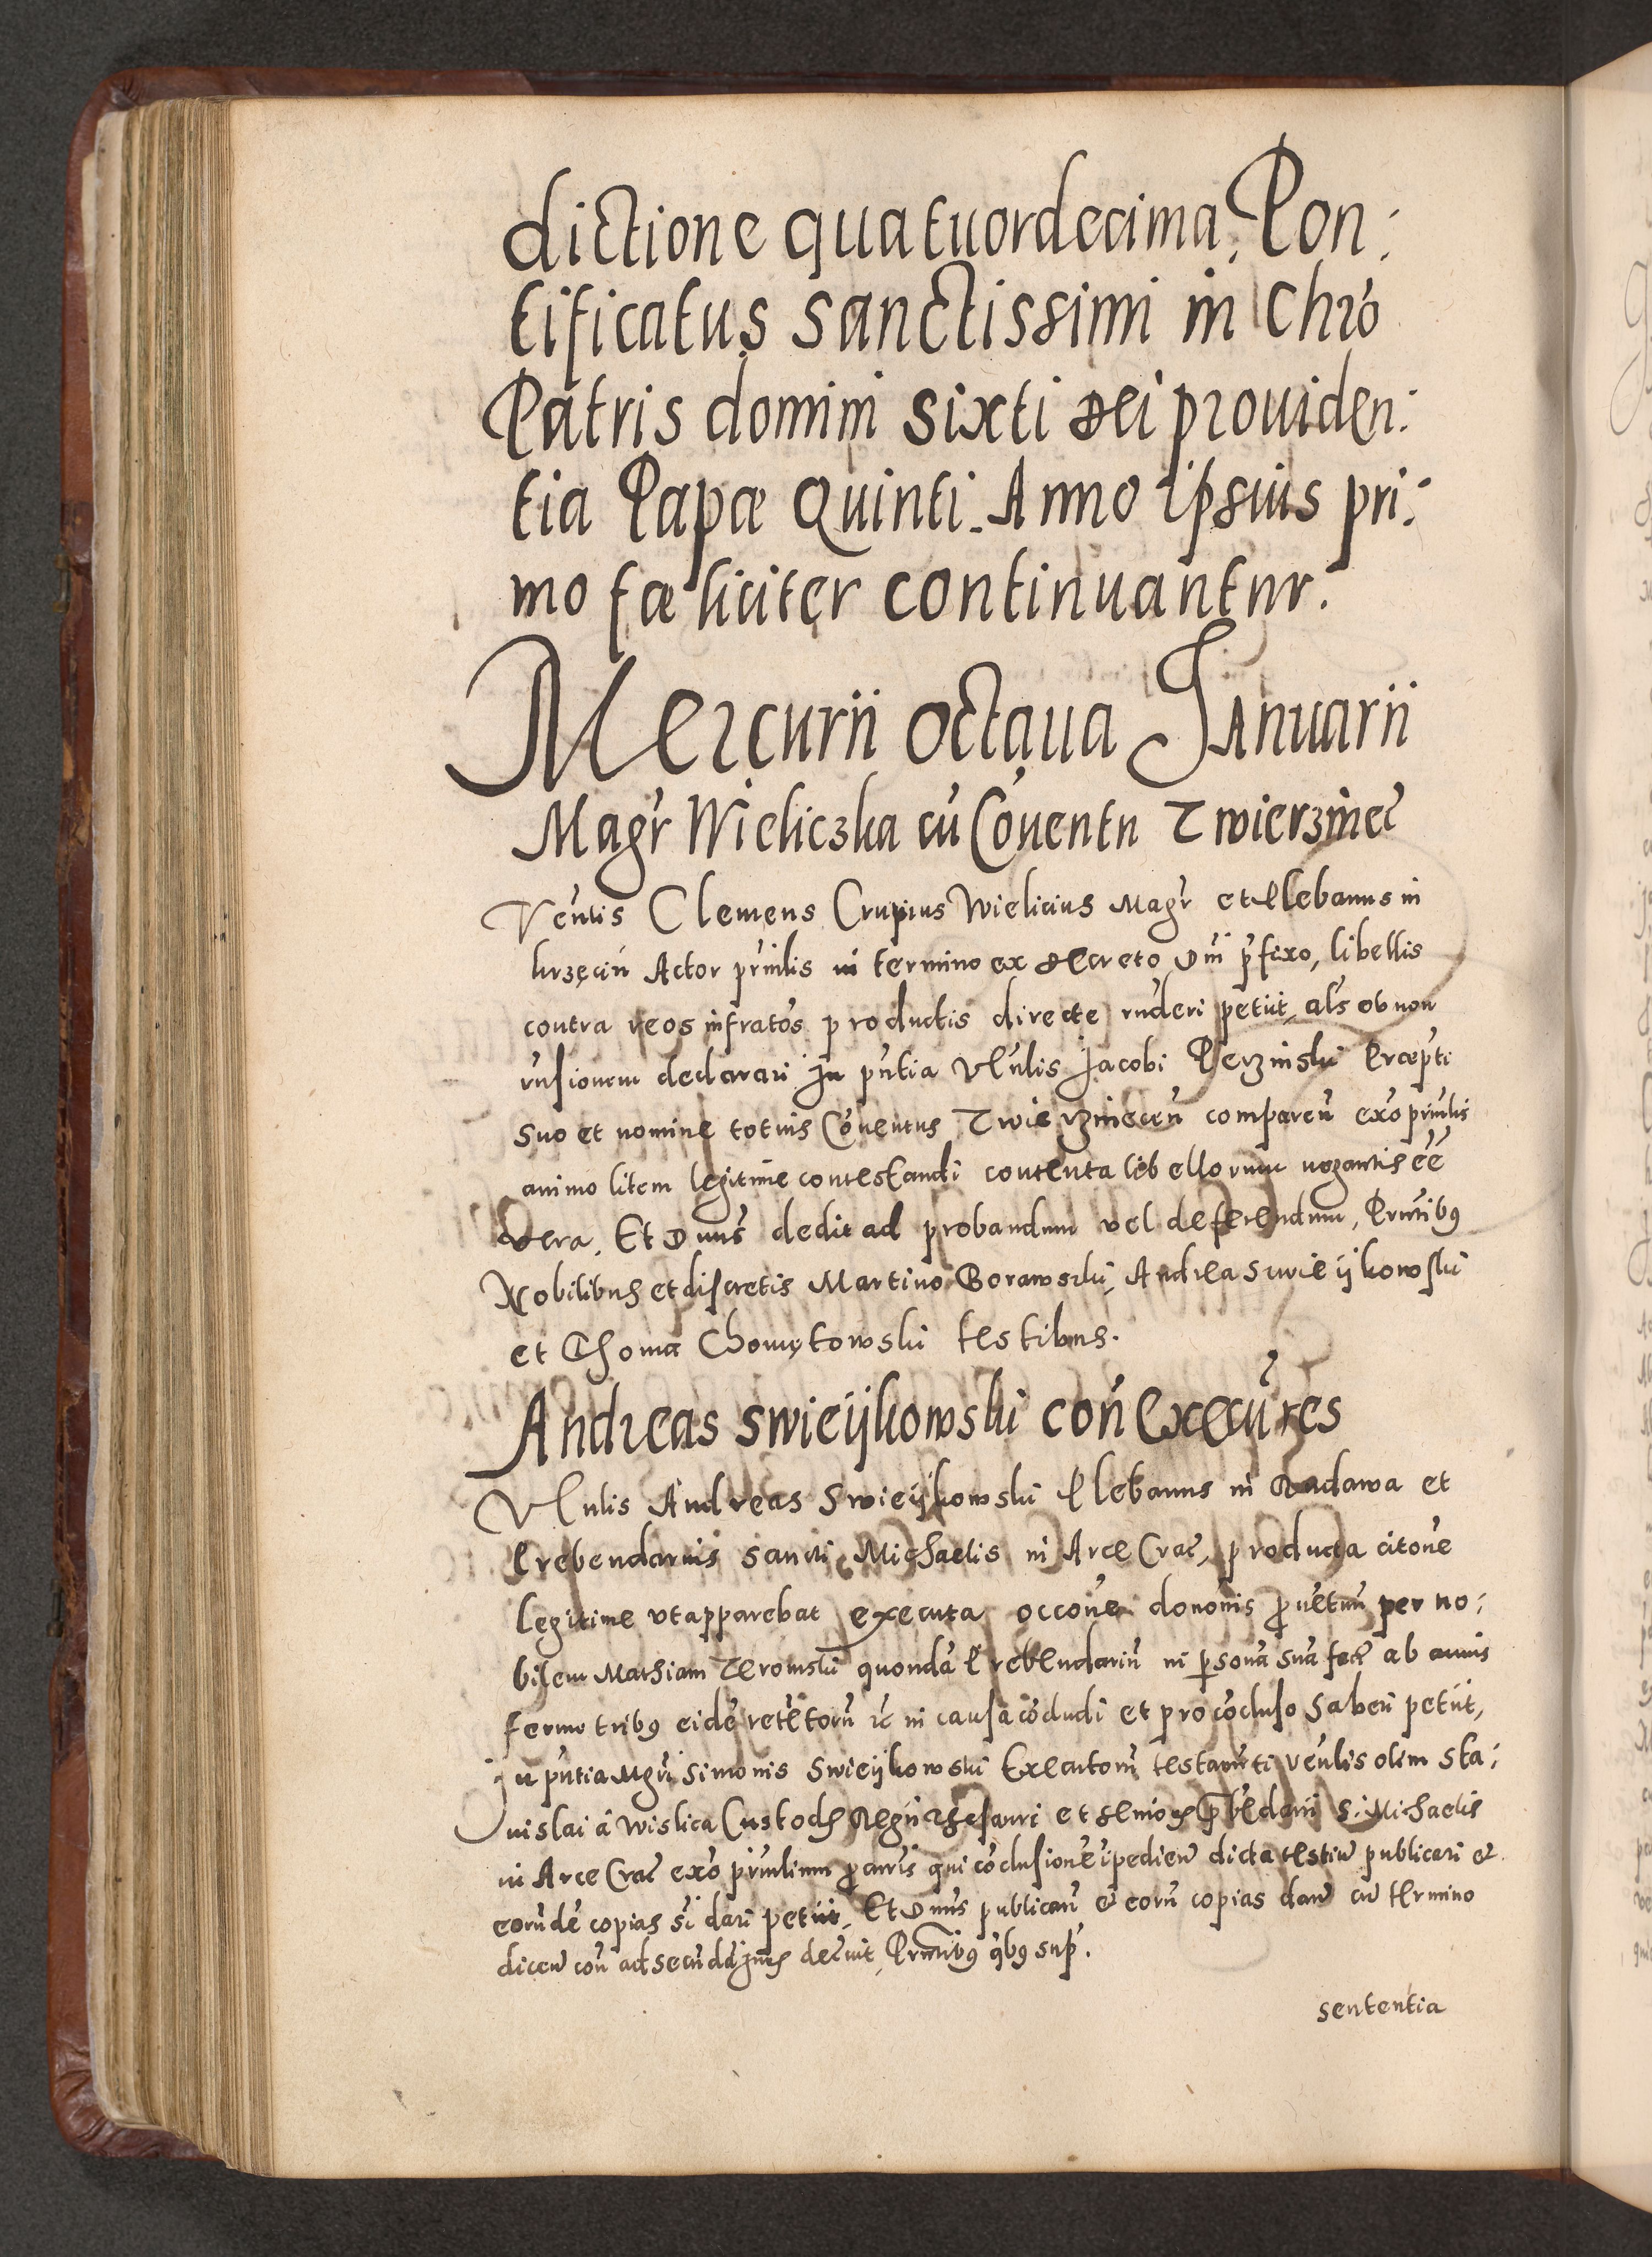 dictione quatuordecima, Pon:
tificatus sanctissimi in Chró
Patris domini Sixti dei prouiden:
tia Papæ Quinti. Anno ipsius pri:
mo fæliciter continuantur.
Mercurii octaua Januarii
Magr̃ Wieliczka cū Cōuentu Zwierzinec̃
Veñtis Clemens Crupius Wielicius Magr̃ et Plebanus in
Actor prinlis in termino ex decreto Dñi p̃fixo, libellis
contra reos infratos productis directe rñderi petiit, als̃ ob non
rñsionem declarari In pñtia Vẽnlis Jacobi Pierzinski Præpti
suo et nomine totius Cōuentus Zwierzinecen̄ comparen̄ exo prinlis
animo litem legitime contestandi contenta libellorum negantis ēē
vera. Et Dnus dedit ad probandum vel deferendum, Pñtibꝰ
Nobilibus et discretis Martino Borawski, Andrea Swieijkowski
et Thoma Chomętowski testibus.
Andreas Swieijkowski coñ Execūres
Vẽnlis Andreas Swieijkowski Plebanus in Radawa et
Prebendarius sancti Michaelis in Arce Crac̃, producta citone
legitime vt apparebat executa occone dononis ꝓuẽtuū per no:
bilem Mathiam Zerowski quondā Prebendariū in ꝑsonā suā fac̃ ab annis
ferme tribꝰ eidē retẽtorū rc̃ in causa cōcludi et pro cōcluso haberi petiit,
In pñtia Mgri Simonis Swieijkowski Executoris testamti Veñlis olim Sta:
nislai à Wislica Custodis Regii Thesauri et senioris Prebēdarii S. Michaelis
in Arce Crac̃ exo prinlium qui cōclusionē īpediend dicta testiū publicari et
eorūdē copias si dari petiit, Et Dnus publicauit et eorū copias dand cū termino
dicend con ad secundā Juris decreuit, Pñtibꝰ qbꝰ sup̃.
sententia